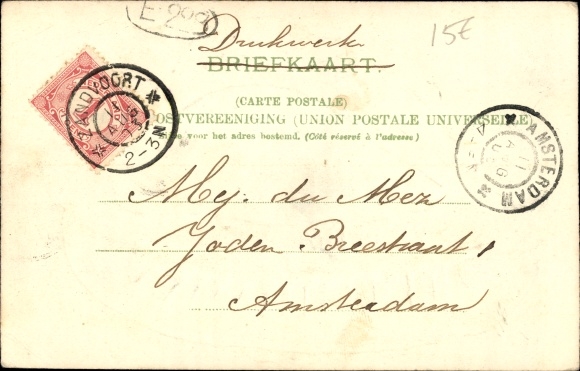 15€
Drukwerk
BRIEFKAART.
(CARTE POSTALE)
POSTVEREENIGING (UNION POSTALE UNIVERSELLE)
voor het adres bestemd. (Côté réservé à l'adresse)
ZANDVOORT
2-3N
AMSTERDAM
11
Mej. du Mez
Joden Breestraat,
Amsterdam